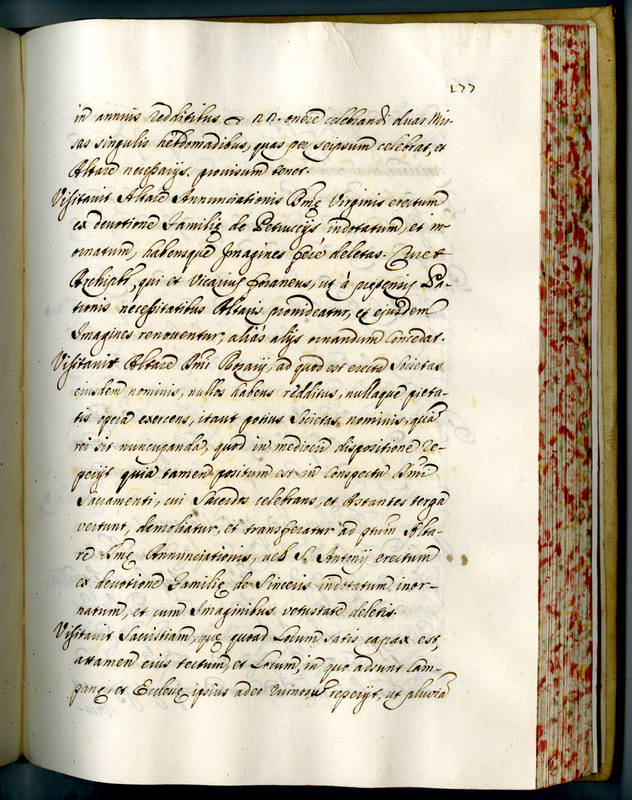 177
in annuis redditibus & 22. onere celebrandi duas Mis-
sas singulis hebdomadibus, quas per seipsum celebrat, et
Altare necessarijs provisum tenet.
Visitavit Altare Annunciationis Bmę Virginis erectum
ex devotione Familię de Petruccijs indotatum, et in-
ornatum, habensque Imagines ferè deletas. Curet
Archiptr, qui et Vicarius foraneus, ut à
tionis necessitatibus Altaris provideatur, et ejusdem
Imagines renoventur; aliàs alijs ornandum concedat.
Visitavit Altare Bmi Rosarij, ad quod est erecta Societas
eiusdem nominis, nullos habens redditus, nullaque pieta-
tis opera exercens, itaut potius Societas nominis, quàm
rei sit nuncupanda, quod in mediocri dispositione re-
perijt quia tamen positum est in conspectu Smi
Sacramenti, cui Sacerdos celebrans, et Astantes terga
vertunt, demoliatur, et transferatur ad ptum Alta-
re Bmę Annunciationis, vel S. Antonij erectum
ex devotione Familię de Sinceris indotatum inor-
natum, et cum Imaginibus vetustate deletis.
Visitavit Sacristiam, quę quoad Locum satis capax est,
attamen eius tectum, et Locum, in quo adsunt Cam-
panę, et Ecclesię ipsius adeo ruinosum reperijt, ut pluvia